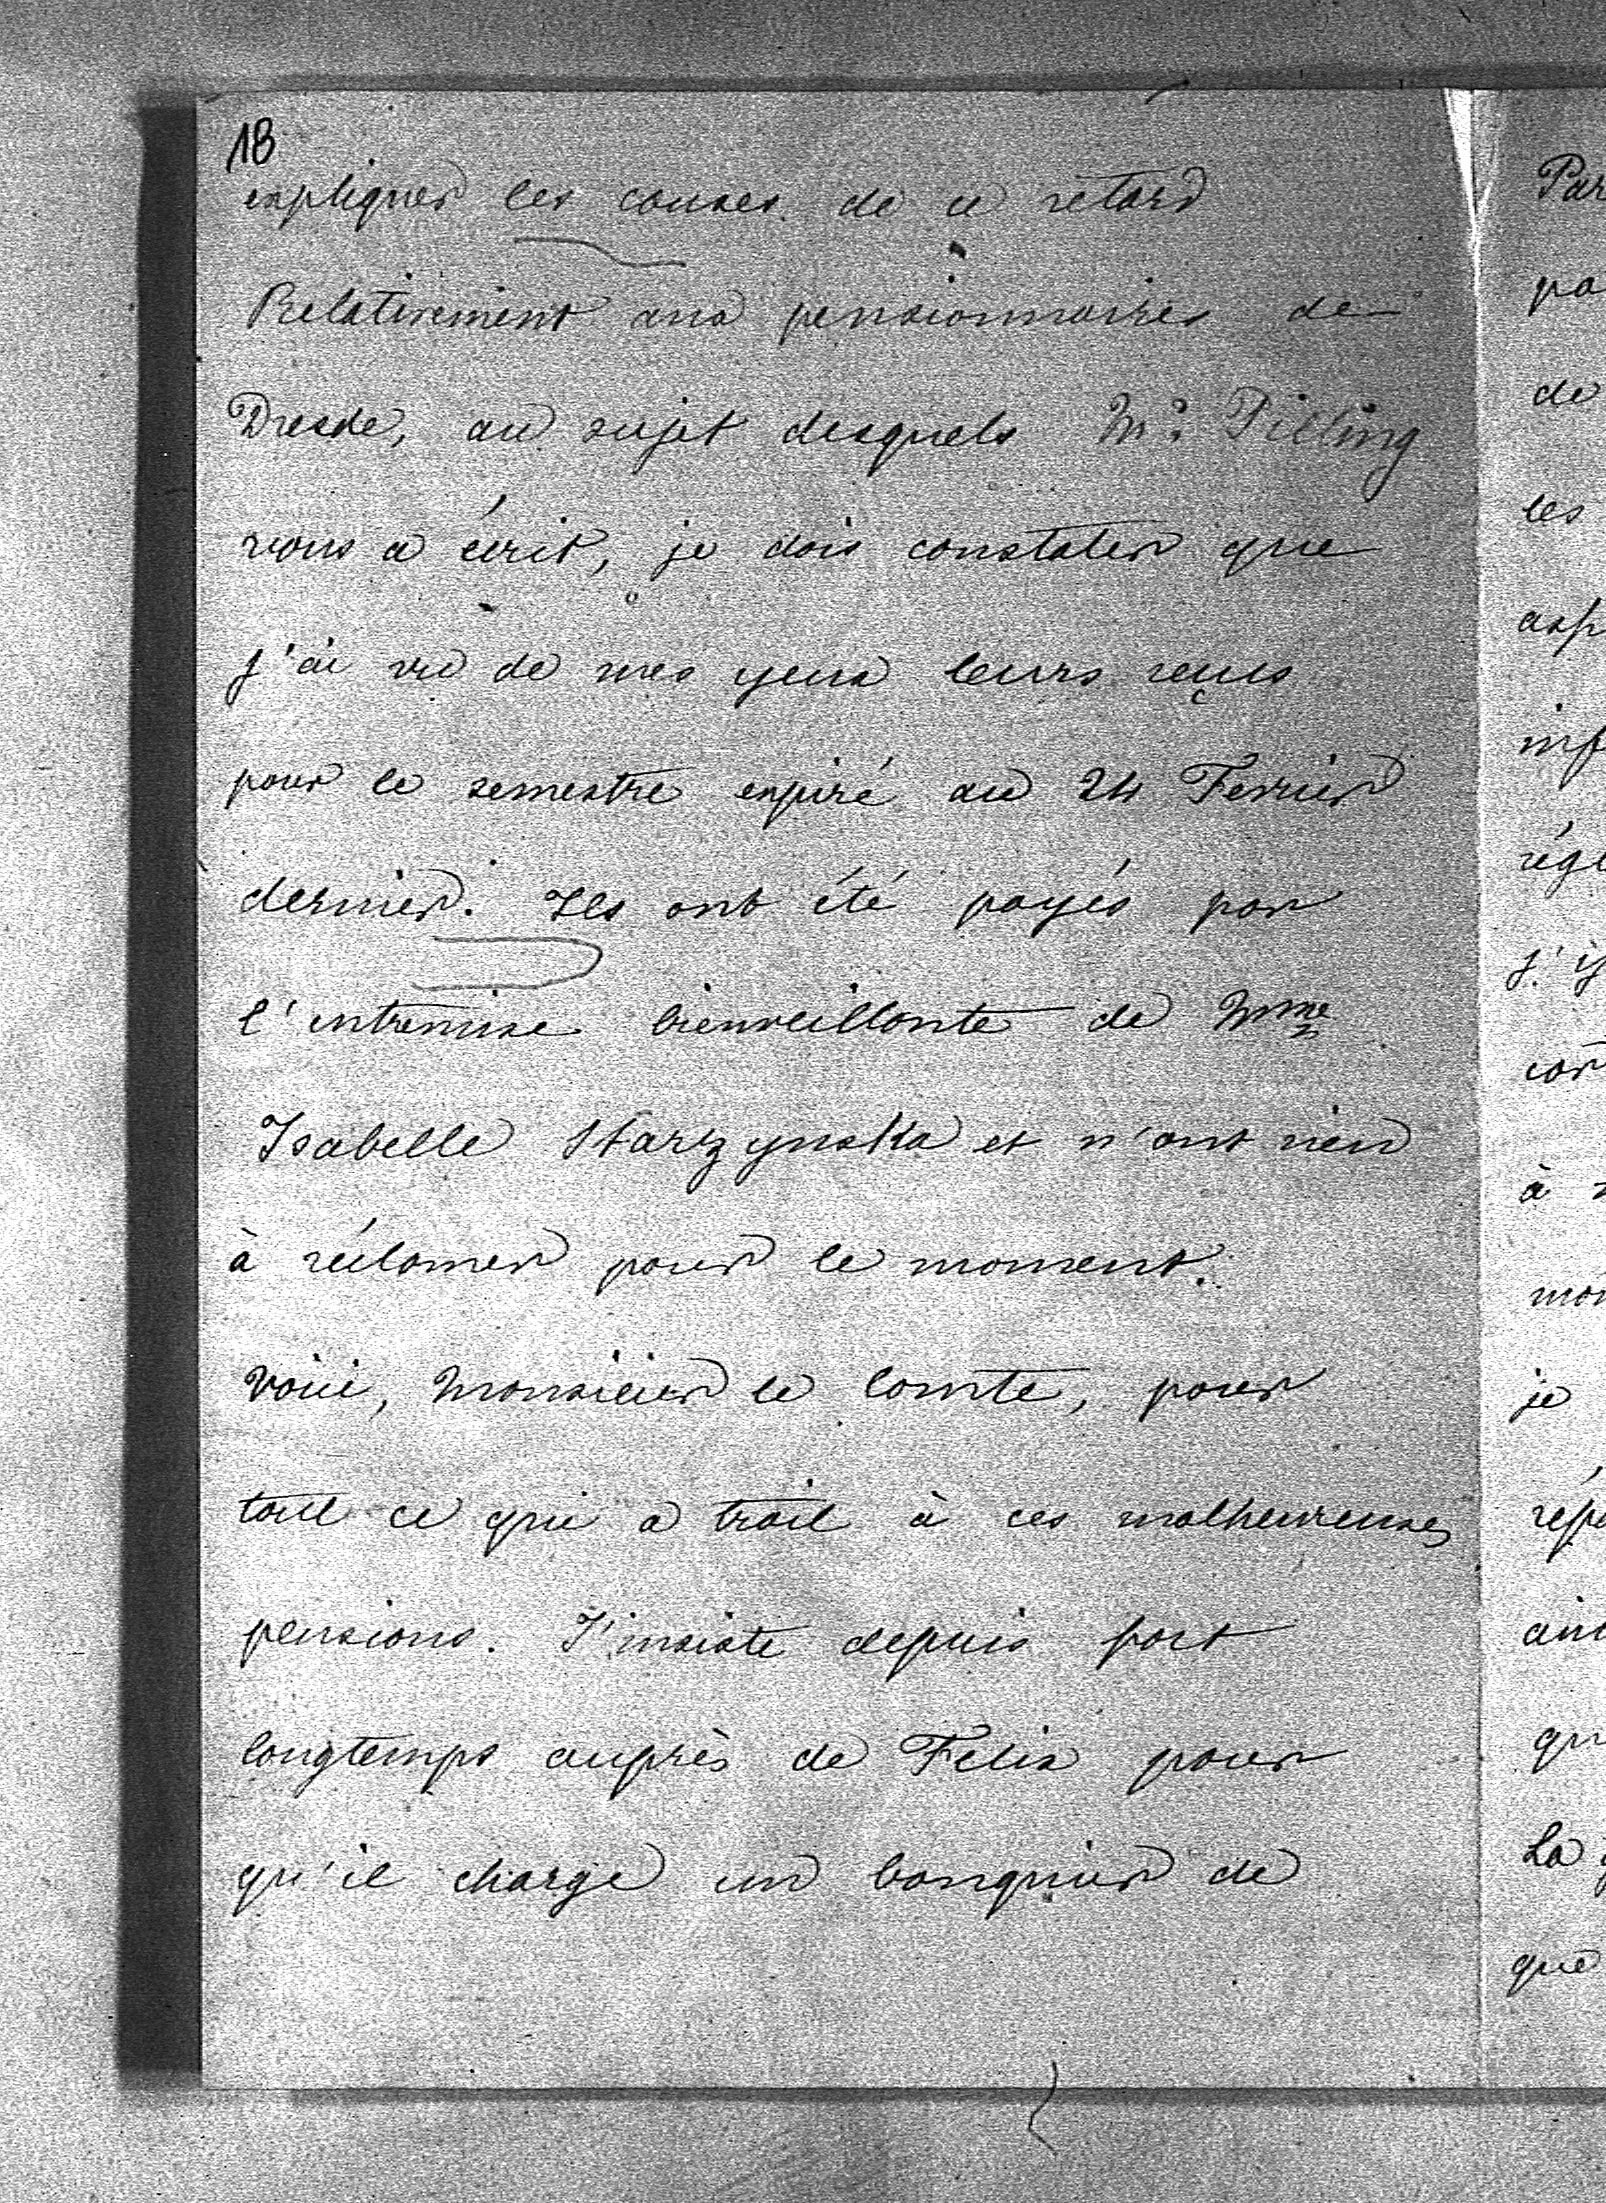 18
expliquer les causes de ce retard
Relativement aux pensionnaires de
Dresde, au sujet desquels Mr. Pilling
vous a écrit, je dois constater que
j'ai vu de mes yeux leurs reçus
pour le semestre expiré au 24 Fevrier
dernier. Ils ont été payés par
l'entremise bienveillante de Mme
Isabelle Starzynska et n'ont rien
à réclamer pour le moment.
Voici, Monsieur le Comte, pour
tout ce qui a trait à ces malheureuses
pensions. J'insiste depuis fort
longtemps auprès de Felix pour
qu'il charge un banquier de